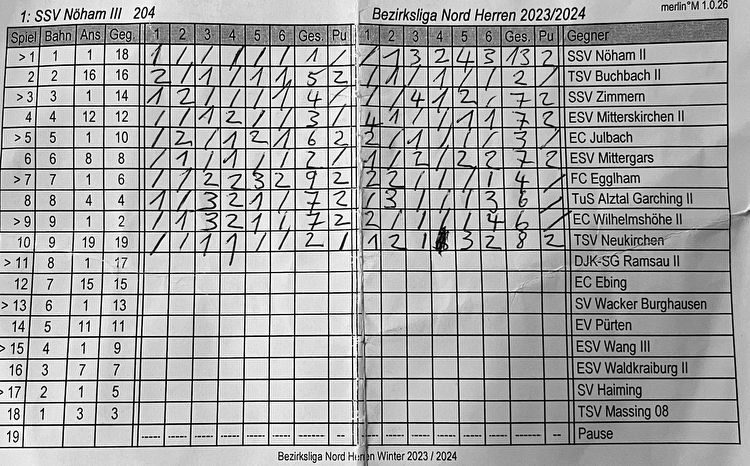 1: SSV Nöham III 204 Bezirksliga Nord Herren 2023/2024 merlin°M 1.0.26
Spiel Bahn Ans Geg. 1 2 3 4 5 6 Ges. Pu 1 2 3 4 5 6 Ges. Pu Gegner
> 1 1 1 18 / / / / / / 1 / / 1 3 2 4 3 13 2 SSV Nöham II
2 2 16 16 2 / 1 / 1 1 5 2 / 1 / 1 / / 2 / TSV Buchbach II
> 3 3 1 14 1 2 / / / 1 4 / / / 4 1 2 / 7 2 SSV Zimmern
4 4 12 12 / / 1 2 / / 3 / 4 1 / / 1 1 7 2 ESV Mitterskirchen II
> 5 5 1 10 / 2 / 1 2 1 6 2 2 / 1 / / / 3 / EC Julbach
6 6 8 8 / 1 / 1 / / 2 / 1 / 2 / 2 2 7 2 ESV Mittergars
> 7 7 1 6 / / 2 2 3 2 9 2 2 2 / / / 1 4 / FC Egglham
8 8 4 4 / / 3 2 1 / 7 2 / 3 / / / 3 6 / TuS Alztal Garching II
> 9 9 1 2 / 1 3 2 1 / 7 2 2 / / / / 4 6 / EC Wilhelmshöhe II
10 9 19 19 / / 1 1 / / 2 / 1 2 1 3 2 8 2 TSV Neukirchen
> 11 8 1 17 DJK-SG Ramsau II
12 7 15 15 EC Ebing
> 13 6 1 13 SV Wacker Burghausen
14 5 11 11 EV Pürten
> 15 4 1 9 ESV Wang III
16 3 7 7 ESV Waldkraiburg II
> 17 2 1 5 SV Haiming
18 1 3 3 TSV Massing 08
19 ----- ----- ----- ----- ----- ----- ------- -- ----- ----- ----- ----- ----- ----- ------- -- Pause
Bezirksliga Nord Herren Winter 2023 / 2024